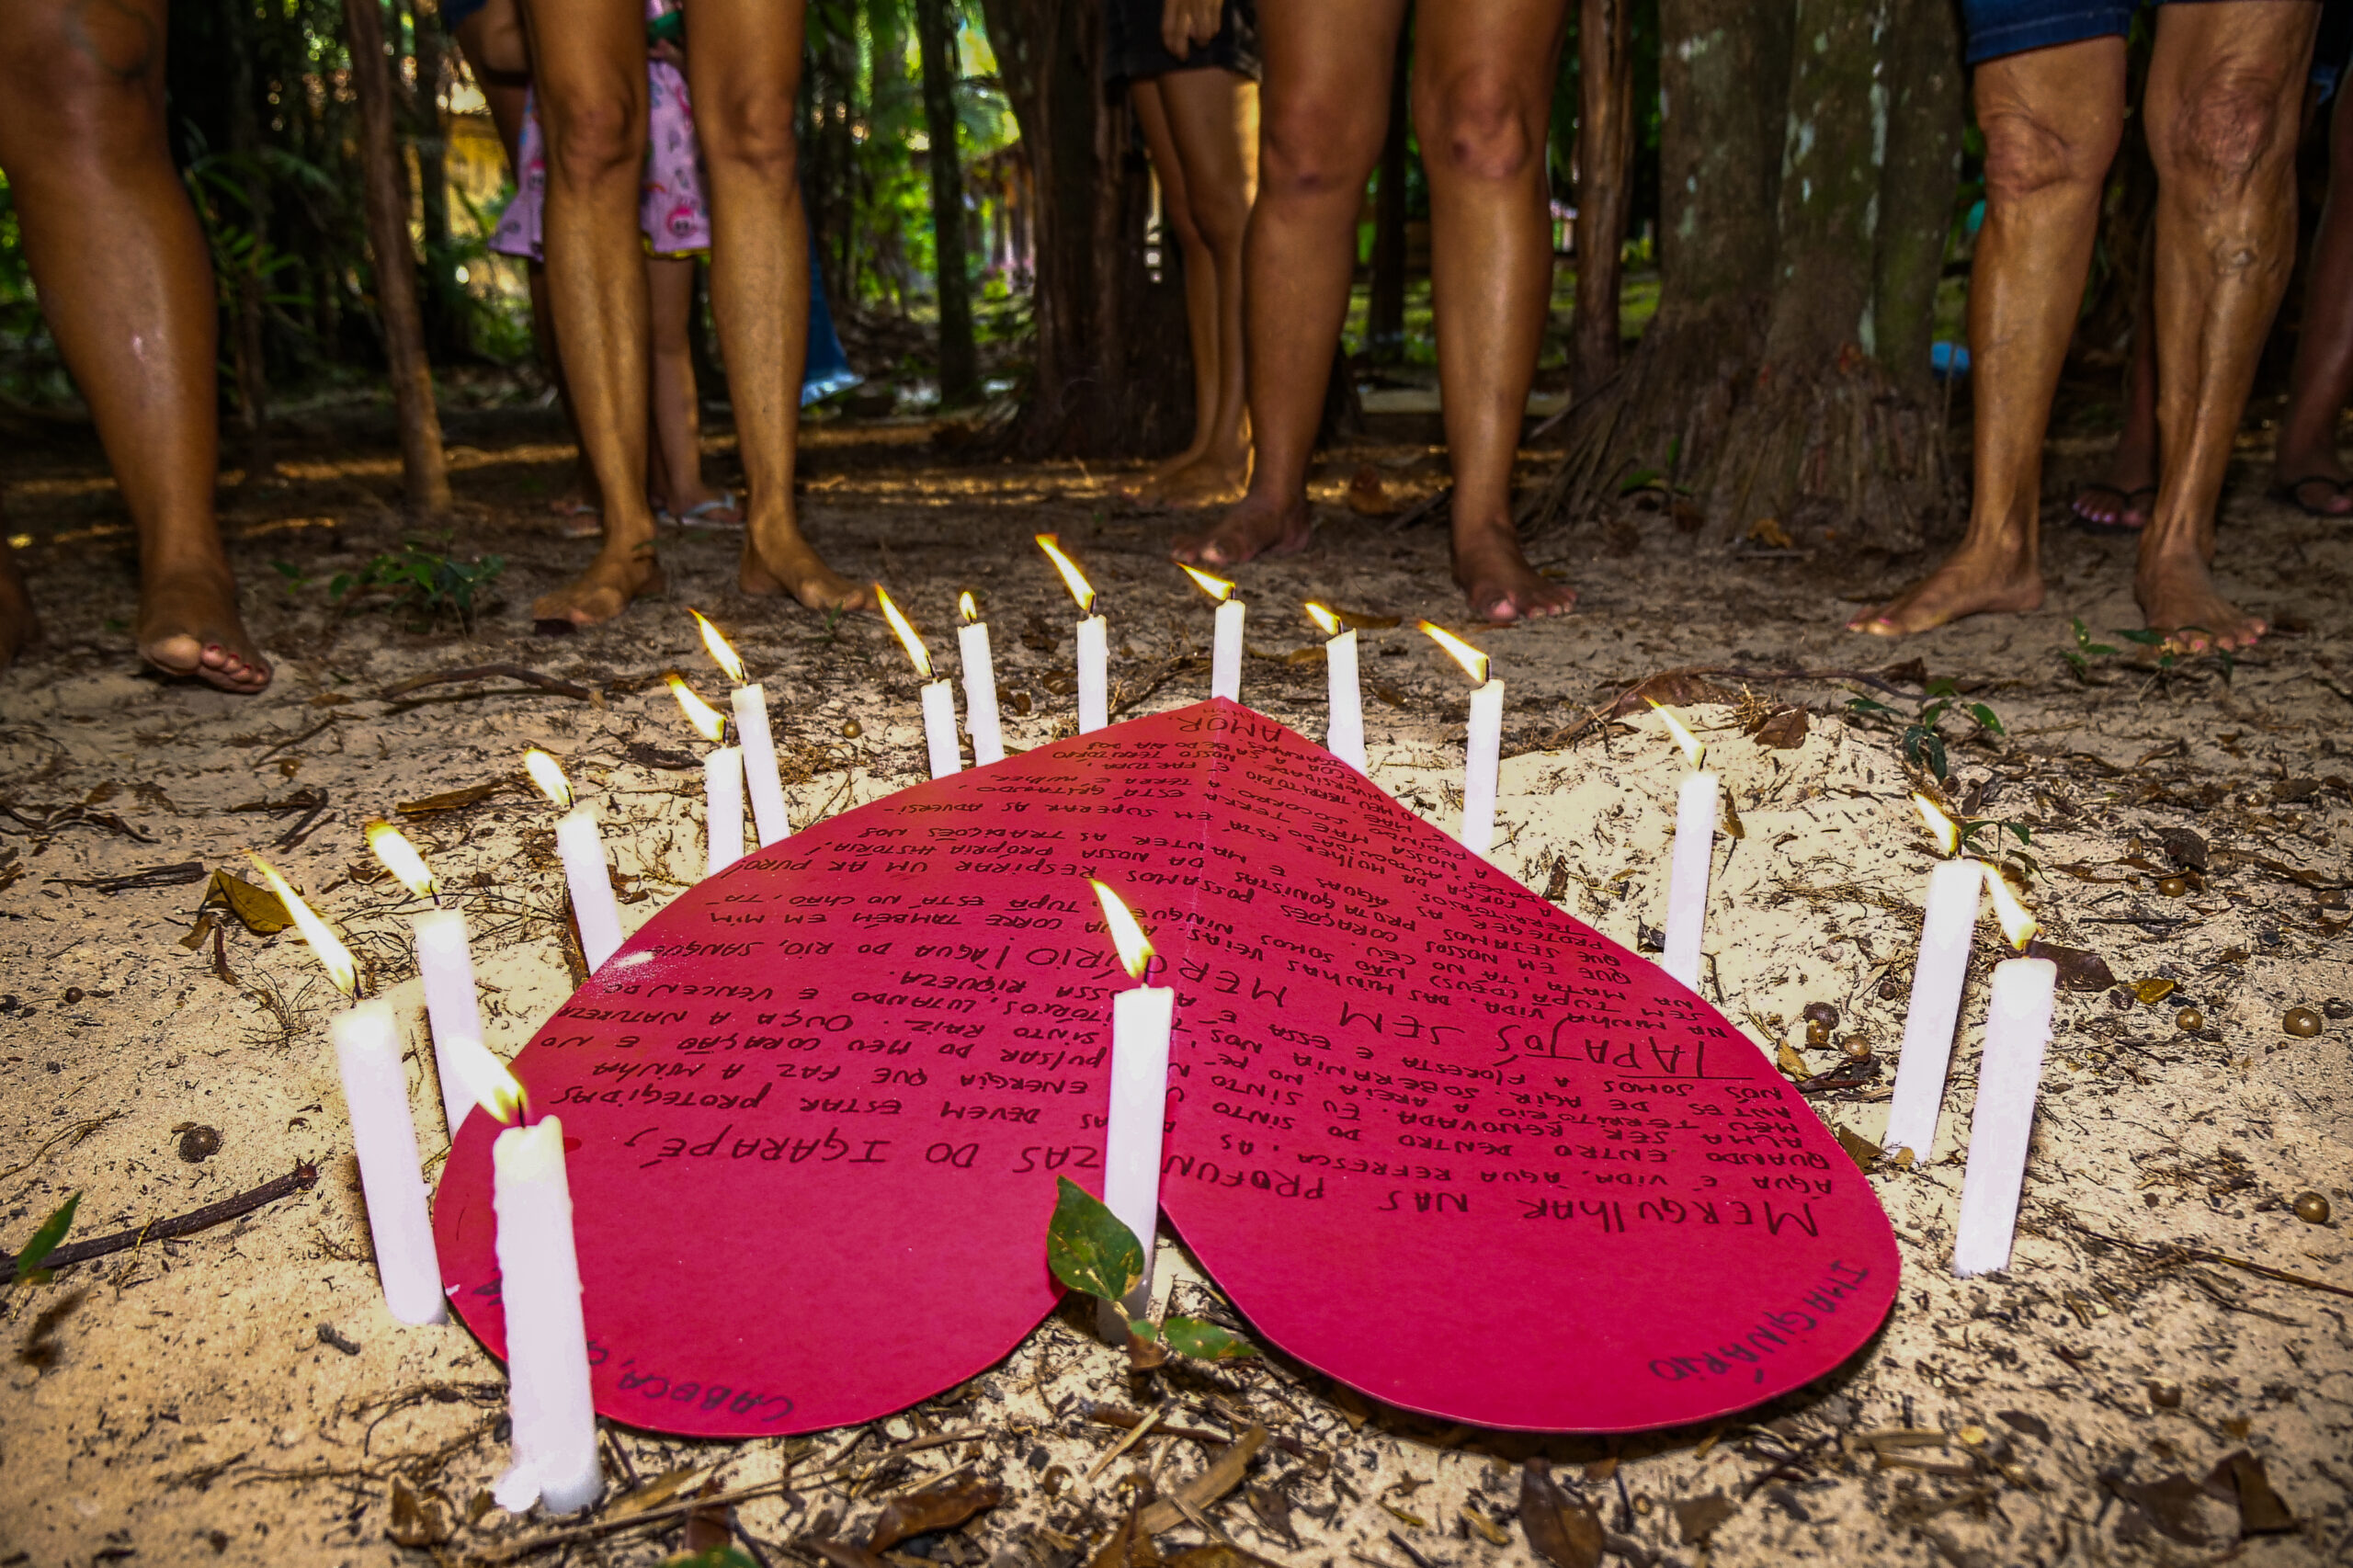 IMAGINÁRIO
CABOCA,
MERGULHAR NAS PROFUN ZAS DO IGARAPÉ,
ÁGUA É VIDA, ÁGUA REFRESCA, AS AS DEVEM ESTAR PROTEGIDAS
QUANDO ENTRO DENTRO DO SINTO ENERGIA QUE FAZ A MINHA
ALMA SER RENOVADA. EU SINTO PULSAR DO MEU CORAÇÃO E NO
MEU TERRITÓRIO A AREIA NO PÉ SINTO RAIZ. OUÇA A NATUREZA
ANTES DE AGIR. SOBERANIA NOS ITÓRIOS, LUTANDO E VENCENDO
NÓS SOMOS A FLORESTA E ESSA É A NOSSA RIQUEZA.
TAPAJÓS SEM MERCÚRIO! ÁGUA DO RIO, SANGUE
NA MINHA VIDA, DAS MINHAS VEIAS A ÁGUA CORRE TAMBÉM EM MIM
SEM TUPÃ (DEUS) NÃO SOMOS NINGUÉM, TUPÃ ESTÁ NO CHÃO, TÁ
NA MATA, TÁ NO CÉU.
QUE EM NOSSOS CORAÇÕES POSSAMOS RESPIRAR UM AR PURO!
QUE SEJAMOS PROTAGONISTAS DA NOSSA PRÓPRIA HISTÓRIA!
PROTEGER AS ÁGUAS E MANTER AS TRADIÇÕES NOS
TERRITÓRIOS
A FORÇA DA MULHER ESTÁ EM SUPERAR AS ADVERSI-
DADES, AUTOCUIDADO.
A NOSSA MÃE TERRA ESTÁ GRITANDO,
PEDINDO SOCORRO A TERRA É MULHER
E MÃE
O MEU TERRITÓRIO É FARTURA,
DIVERSIDADE NO NOSSO TERRITÓRIO
ECOA A DOS
IGARAPÉS
AMOR,